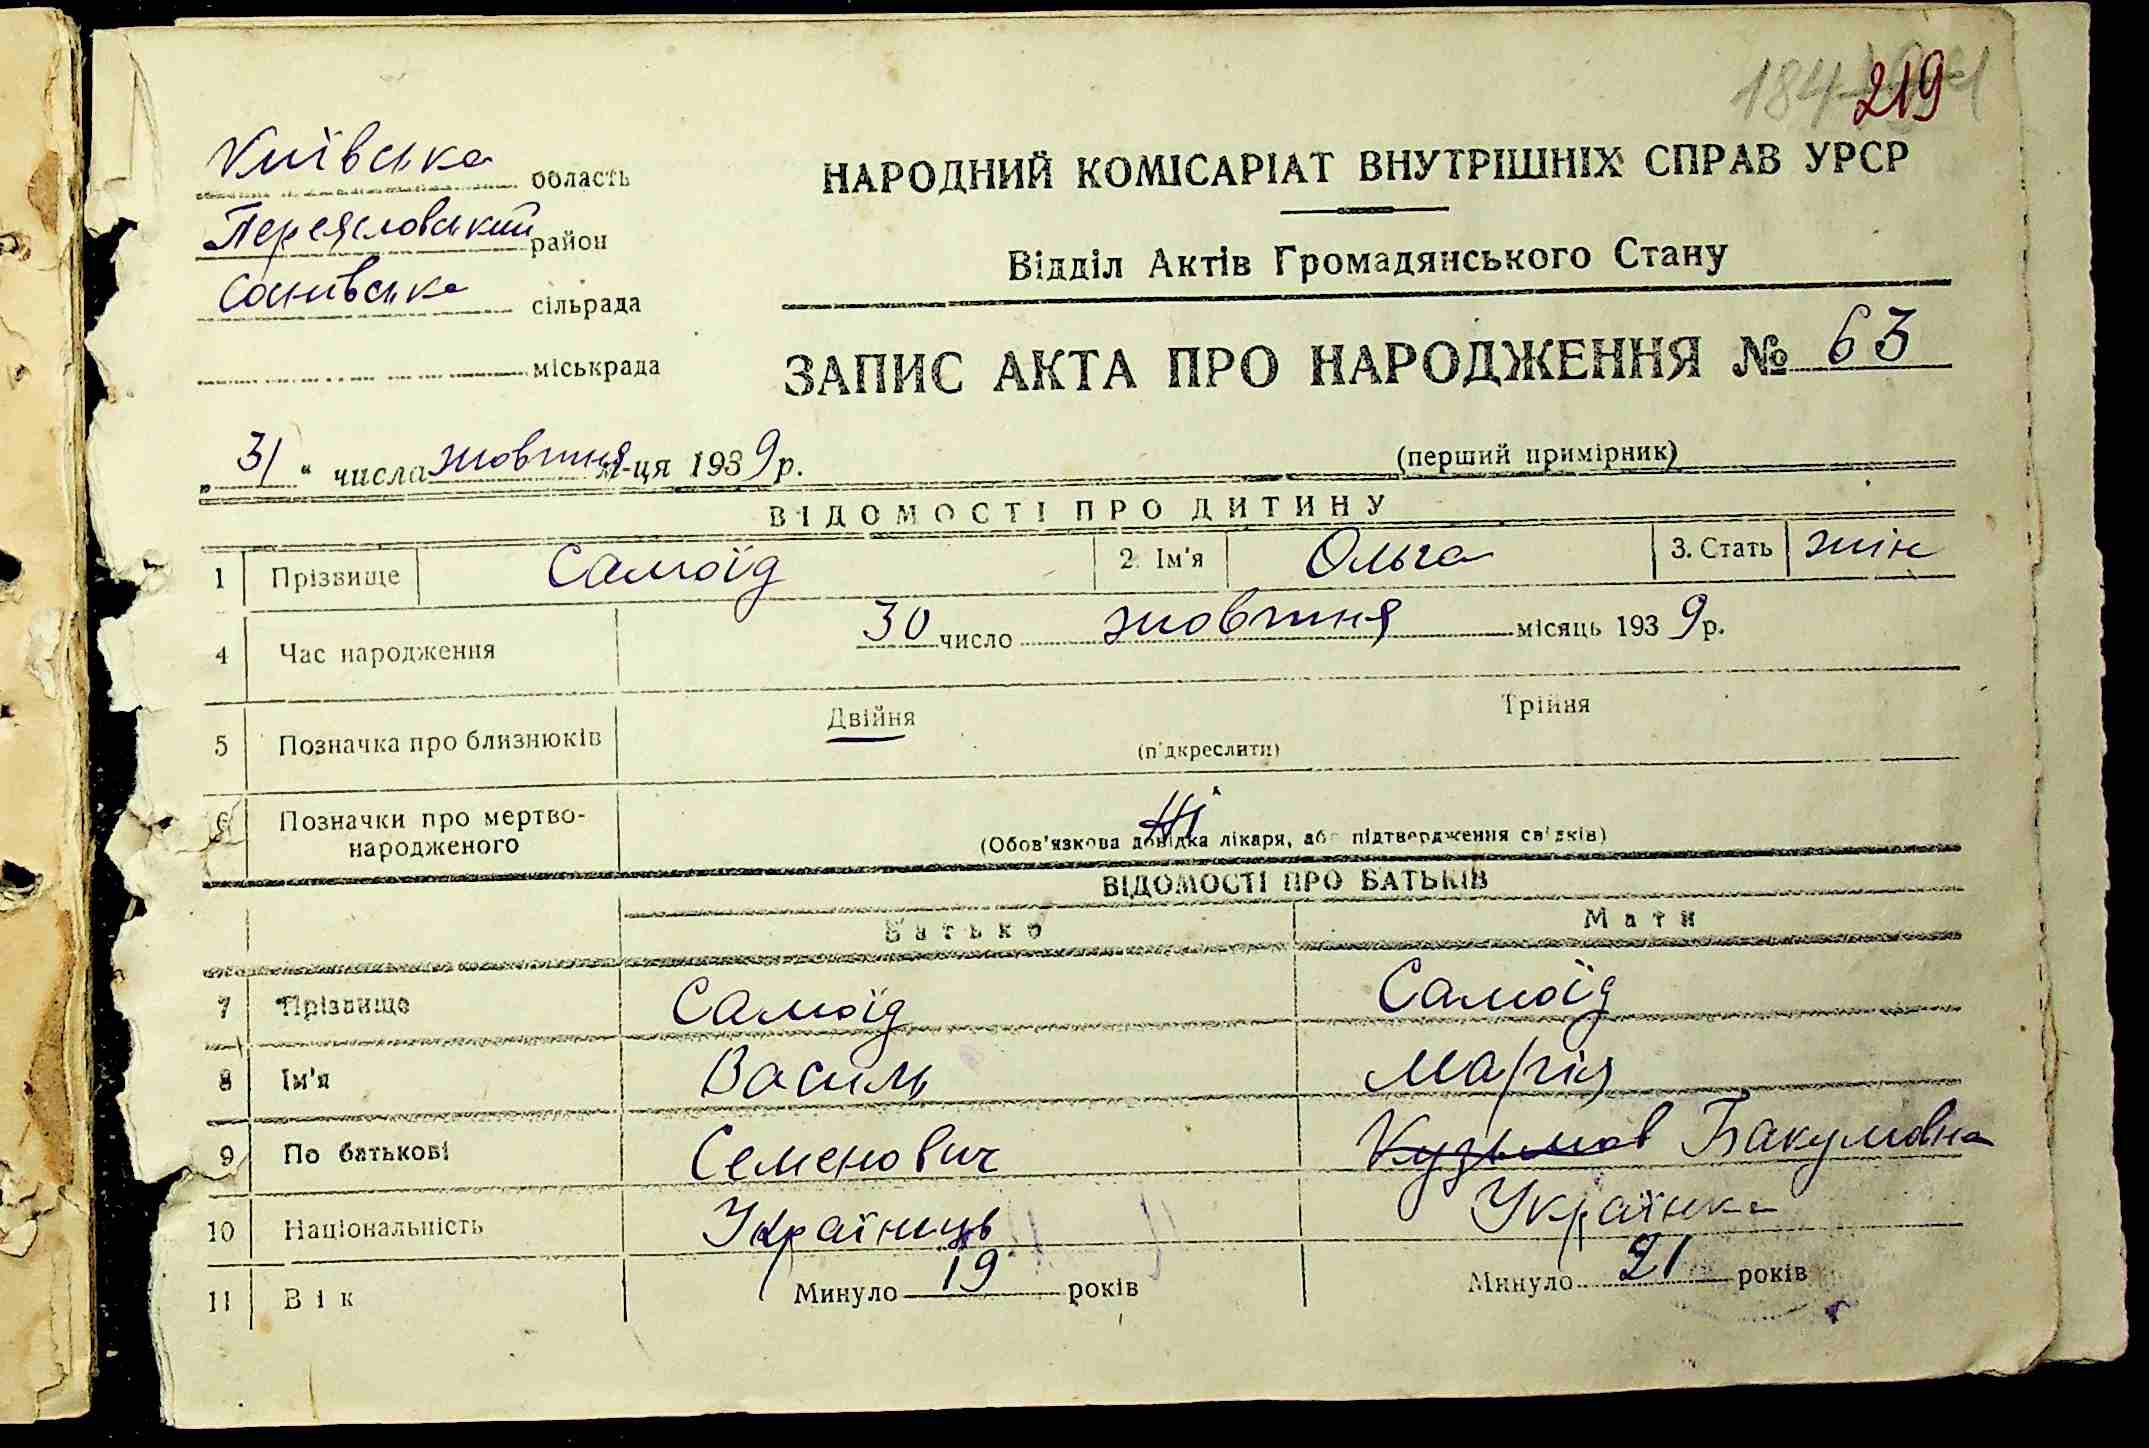 219
Київська область
Переяславський район
Сосновська сільрада
міськрада
НАРОДНИЙ КОМІСАРІАТ ВНУТРІШНІХ СПРАВ УРСР
Відділ Актів Громадянського Стану
ЗАПИС АКТА ПРО НАРОДЖЕННЯ № 63
„31“ числа жовтня м-ця 1939 р.
(перший примірник)
ВІДОМОСТІ ПРО ДИТИНУ
1 Прізвище Самоїд 2. Ім'я Ольга 3. Стать жін
4 Час народження 30 число жовтня місяць 1939 р.
5 Позначка про близнюків Двійня Трійня
(підкреслити)
6 Позначки про мертво-
народженого Ні
(Обов'язкова довідка лікаря, або підтвердження свідків)
ВІДОМОСТІ ПРО БАТЬКІВ
Батько Мати
7 Прізвище Самоїд Самоїд
8 Ім'я Василь Марія
9 По батькові Семенович Кузьмов Бакумовна
10 Національність Українець Українка
11 Вік Минуло 19 років Минуло 21 років